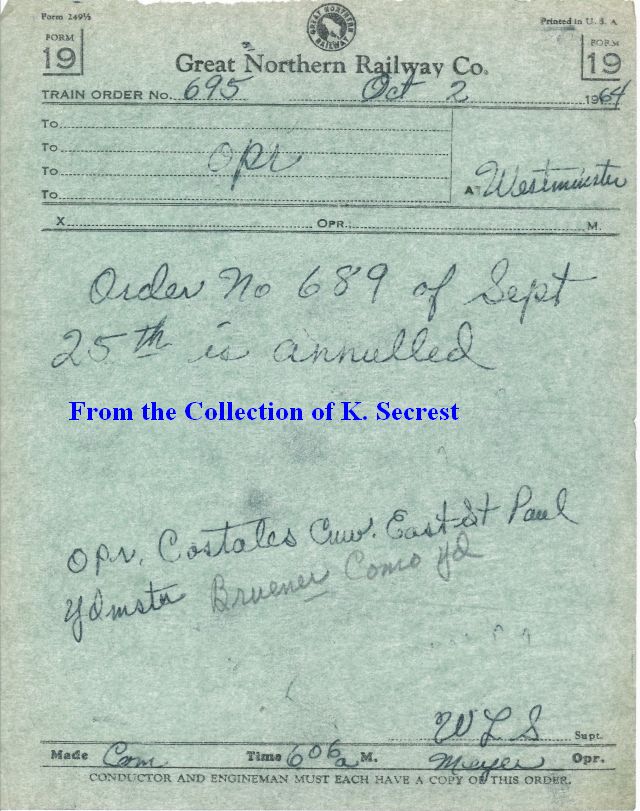 Form 249½
Printed in U. S. A.
FORM
19
GREAT NORTHERN RAILWAY
FORM
19
Great Northern Railway Co.
TRAIN ORDER No. 695 Oct 2 1964
To
To opr
To
To
AT Westminster
X OPR. M.
Order No 689 of Sept
25th is annulled
From the Collection of K. Secrest
Opr. Costales Cuw. East St Paul
Ydmster Bruener Como Yd
W L S Supt.
Made Com Time 606a M. Meyer Opr.
CONDUCTOR AND ENGINEMAN MUST EACH HAVE A COPY OF THIS ORDER.